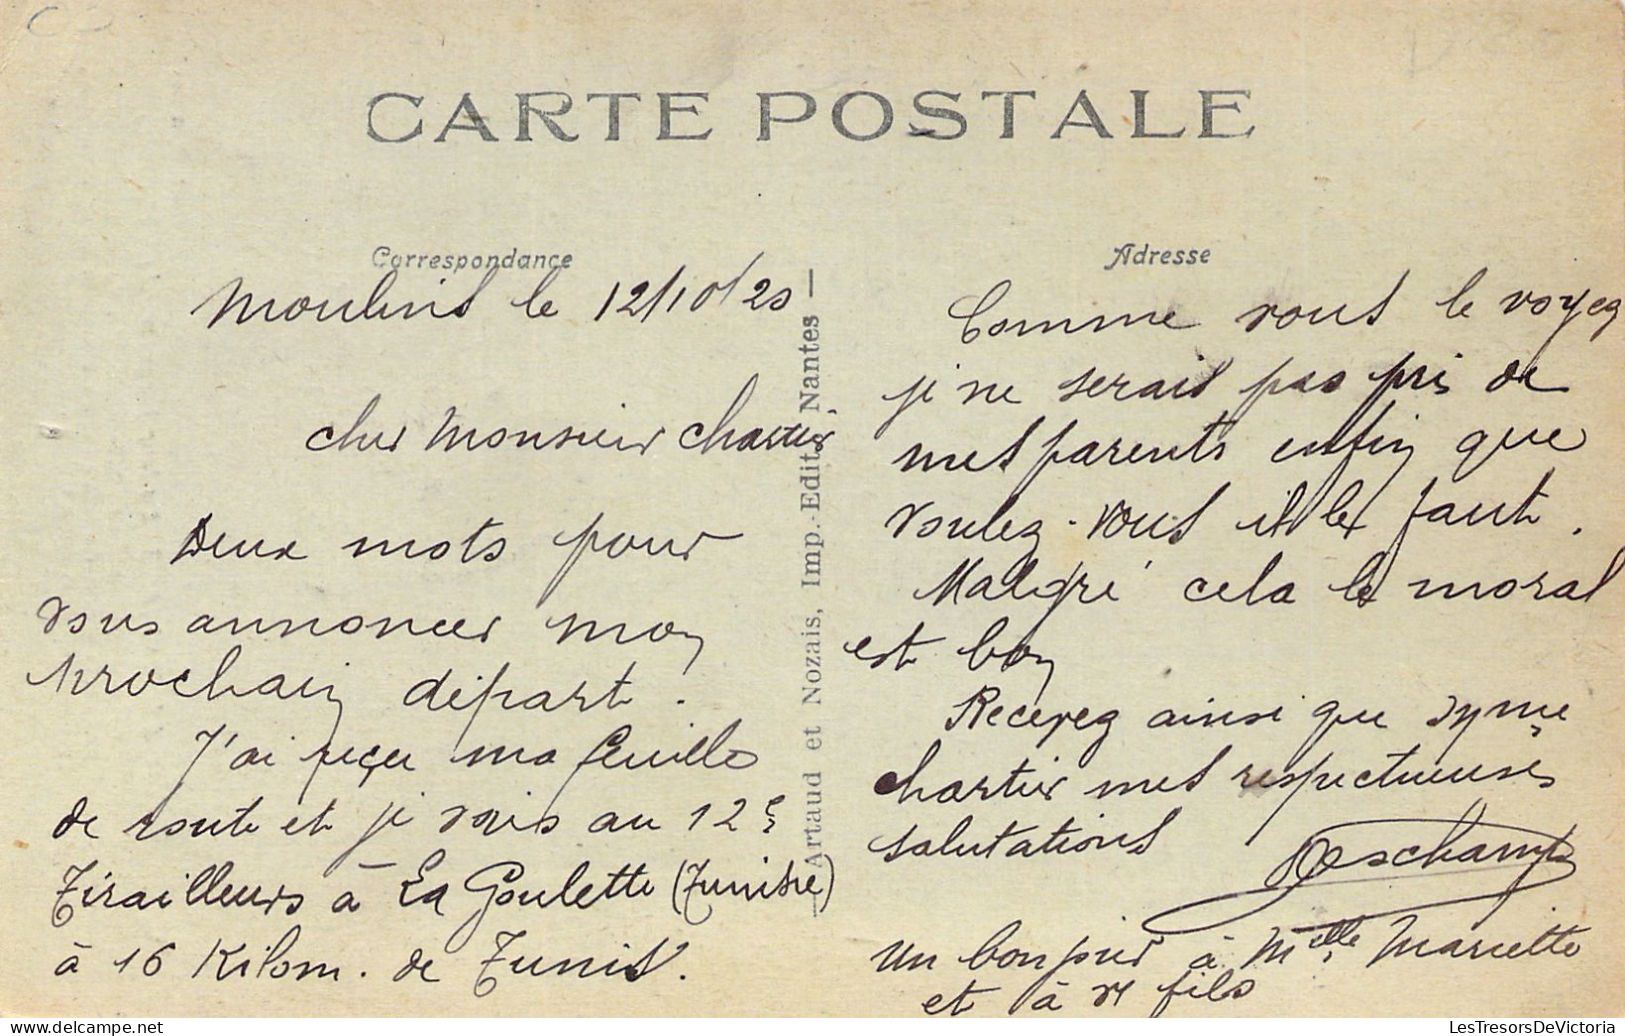 CARTE POSTALE
Correspondance
Moulins le 12/10/20
cher Monsieur Chartier
Deux mots pour
vous annoncer mon
prochain départ.
J'ai reçu ma feuille
de route et je vais au 12e
Tirailleurs à La Goulette (Tunisie)
à 16 Kilom. de Tunis.
Artaud et Nozais, Imp.-Edit., Nantes
Adresse
Comme vous le voyez
je ne serais pas pris de
mes parents enfin que
voulez-vous il le faut.
Malgré cela le moral
est bon
Recevez ainsi que Mme
Chartier mes respectueuses
salutations
Deschamps
Un bonjour à Melle Mariette
et à fils
LesTresorsDeVictoria